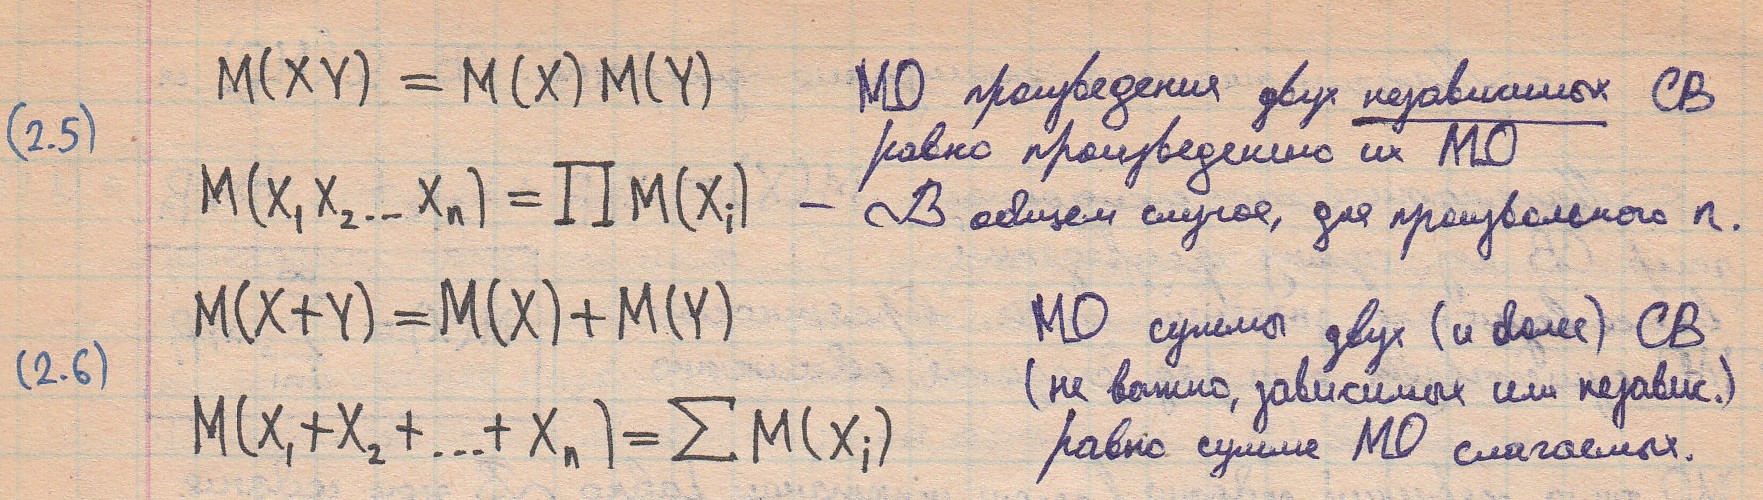 M(XY) = M(X) M(Y) МО произведения двух независимых СВ
(2.5) равно произведению их МО
M(X₁ X₂ ... Xₙ) = ∏ M(Xᵢ) – В общем случае, для произвольного n.
M(X+Y) = M(X) + M(Y) МО суммы двух (и более) СВ
(2.6) (не важно, зависимых или независ.)
M(X₁+X₂+...+Xₙ) = ∑ M(Xᵢ) равно сумме МО слагаемых.